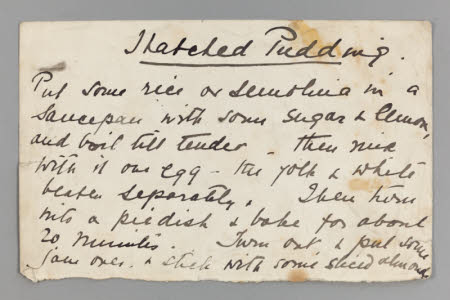 Thatched Pudding.
Put some rice or Semolina in a
saucepan with some sugar & lemon,
and boil till tender - then mix
with it one egg - the yolk & white
beaten separately. Then turn
into a piedish & bake for about
20 minutes. Turn out & put some
jam over & stick with some sliced almonds